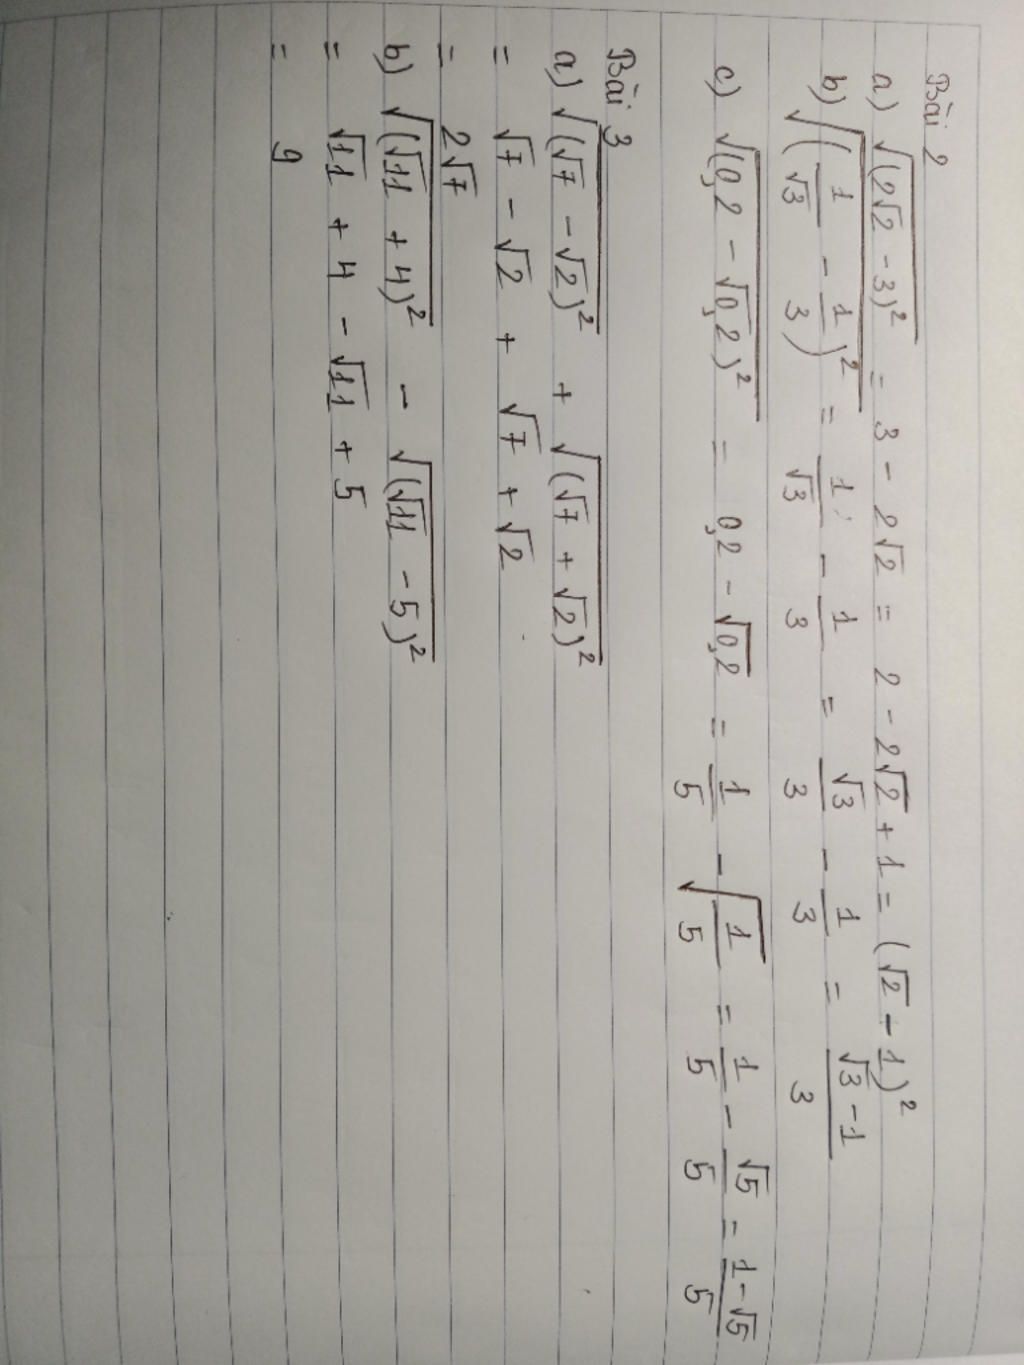 Bài 2
a) √(2√2 - 3)² = 3 - 2√2 = 2 - 2√2 + 1 = (√2 - 1)²
b) √(1/√3 - 1/3)² = 1/√3 - 1/3 = √3/3 - 1/3 = (√3 - 1)/3
c) √(0,2 - √0,2)² = 0,2 - √0,2 = 1/5 - √(1/5) = 1/5 - √5/5 = (1 - √5)/5
Bài 3
a) √(√7 - √2)² + √(√7 + √2)²
= √7 - √2 + √7 + √2
= 2√7
b) √(√11 + 4)² - √(√11 - 5)²
= √11 + 4 - √11 + 5
= 9